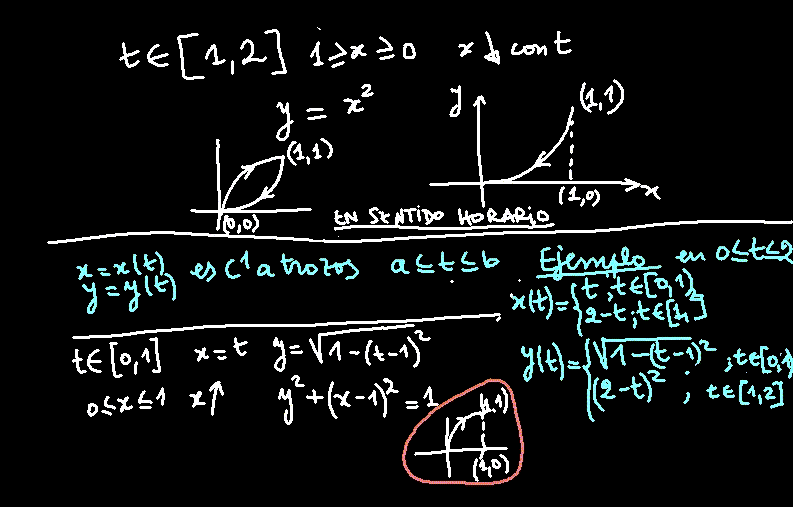 t∈[1,2] 1≥x≥0 x↓ cont
y = x²
y
(1,1)
(1,1)
(0,0)
(1,0)
x
EN SENTIDO HORARIO
x=x(t)
y=y(t)
es C¹ a trozos a≤t≤b
Ejemplo en 0≤t≤2
x(t)={t ; t∈[0,1)
2-t; t∈[1,
t∈[0,1] x=t y=√1-(t-1)²
0≤x≤1 x↑ y²+(x-1)²=1
y(t)={√1-(t-1)² ; t∈[0,1)
(2-t)² ; t∈[1,2]
(1,1)
(1,0)